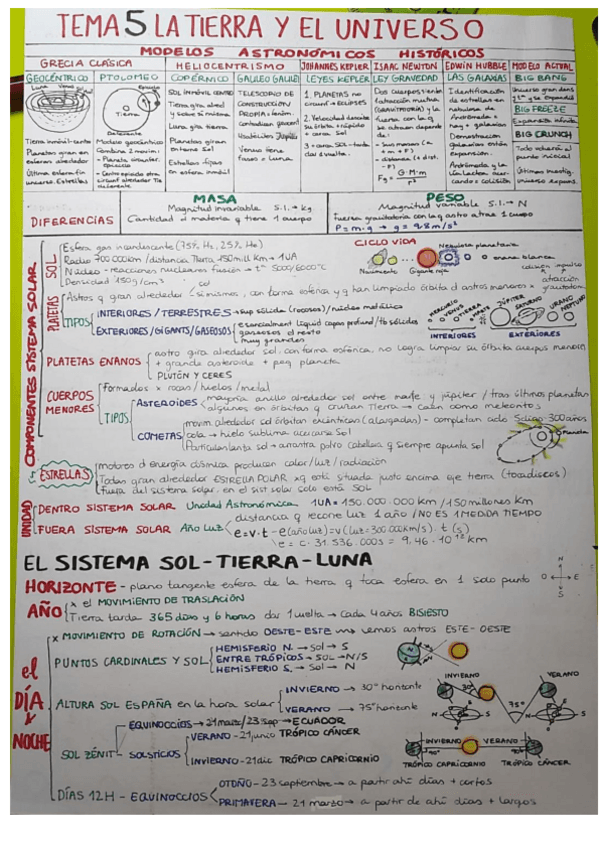 TEMA 5 LA TIERRA Y EL UNIVERSO
MODELOS ASTRONÓMICOS HISTÓRICOS
GRECIA CLÁSICA
HELIOCENTRISMO
JOHANNES KEPLER
ISAAC NEWTON
EDWIN HUBBLE
MODELO ACTUAL
GEOCÉNTRICO
PTOLOMEO
COPÉRNICO
GALILEO GALILEI
LEYES KEPLER
LEY GRAVEDAD
LAS GALAXIAS
BIG BANG
Tierra
Deferente
Tierra inmóvil - centro
Planetas giran en
esferas alrededor
Modelo geocéntrico
SOL inmóvil centro
Tierra gira alred
y sobre sí misma
Luna gira tierra
Planetas giran
en torno Sol
Estrellas fijas
en esfera inmóvil
TELESCOPIO DE
CONSTRUCCIÓN
PROPIA
Venus tiene
fases o luna
1. PLANETAS no
circunf → ELIPSES
2. Velocidad describe
su órbita + rápido
+ cerca Sol
Dos cuerpos tienen
atracción mutua
(GRAVITATORIA) y la
fuerza con la q
se atraen depende
de:
- Sus masas (a
+ m + F)
- distancia (+ dist.
- F)
Fg = G·M·m
r²
Identificación
de estrellas en
nebulosa de
Andrómeda →
hay + galaxias
Demostración
galaxias están
expansión.
BIG FREEZE
Expansión infinita
BIG CRUNCH
Todo volverá al
punto inicial
DIFERENCIAS
MASA
Magnitud invariable S.I. → kg
Cantidad d materia q tiene 1 cuerpo
PESO
Magnitud variable S.I. → N
Fuerza gravitatoria con la q astro atrae 1 cuerpo
P = m·g → g = 9.8 m/s²
COMPONENTES SISTEMA SOLAR
SOL
Esfera gas incandescente (75% H₂, 25% He)
Radio 700 000 km / distancia Tierra 150 mill km → 1UA
Núcleo - reacciones nucleares fusión → tª 5000/6000°C
Densidad 150 g/cm³
CICLO VIDA
Nebulosa planetaria
Nacimiento
Gigante roja
enana blanca
PLANETAS
Astros q giran alrededor sol, con forma esférica y q han limpiado órbita d astros menores x
atracción
gravitatoria
TIPOS
INTERIORES / TERRESTRES → sup sólida (rocosos) / núcleo metálico
EXTERIORES / GIGANTS / GASEOSOS
gaseosos el resto
muy grandes
MERCURIO
VENUS
TIERRA
MARTE
JÚPITER
SATURNO
URANO
NEPTUNO
INTERIORES
EXTERIORES
PLATETAS ENANOS
astro gira alrededor sol, con forma esférica, no logra limpiar su órbita cuerpos menores
+ grande asteroide + peq planeta
PLUTÓN Y CERES
CUERPOS
MENORES
Formados x rocas / hielos / metal
TIPOS
ASTEROIDES
mayoría anillo alrededor sol entre marte y júpiter / tras últimos planetas
algunos en órbitas q cruzan Tierra → Caen como meteoritos
COMETAS
movim. alrededor sol órbitas excéntricas (alargadas) - completan ciclo 300 años
cola → hielo sublima acercarse Sol
ESTRELLAS
motores d energía cósmica producen calor / luz / radiación
Todas giran alrededor ESTRELLA POLAR xq está situada justo encima eje tierra (tocadiscos)
Fuera del sistema solar, en el sist solar solo está SOL
UNIDAD
DENTRO SISTEMA SOLAR Unidad Astronómica 1UA = 150.000.000 km / 150 millones km
FUERA SISTEMA SOLAR Año Luz
distancia q recorre luz 1 año / NO ES 1 MEDIDA TIEMPO
e = v·t → e (año luz) = v (luz = 300.000 km/s) · t (s)
e = c · 31.536.000s = 9.46 · 10¹² km
EL SISTEMA SOL - TIERRA - LUNA
HORIZONTE - plano tangente esfera de la tierra q toca esfera en 1 solo punto
N
O
E
S
AÑO
x el MOVIMIENTO DE TRASLACIÓN
Tierra tarda 365 días y 6 horas dar 1 vuelta → Cada 4 años BISIESTO
el
DÍA
y
NOCHE
x MOVIMIENTO DE ROTACIÓN → sentido OESTE - ESTE → vemos astros ESTE - OESTE
PUNTOS CARDINALES Y SOL
HEMISFERIO N. → Sol → S
ENTRE TRÓPICOS → SOL → N/S
HEMISFERIO S. → Sol → N
ALTURA SOL ESPAÑA en la hora solar
INVIERNO → 30° horizonte
VERANO → 75° horizonte
INVIERNO
30°
VERANO
75°
N
S
SOL ZÉNIT
EQUINOCCIOS → 21 marz / 23 sep → ECUADOR
SOLSTICIOS
VERANO - 21 junio TRÓPICO CÁNCER
INVIERNO - 21 dic TRÓPICO CAPRICORNIO
INVIERNO
90°
TRÓPICO CAPRICORNIO
VERANO
90°
TRÓPICO CÁNCER
DÍAS 12H - EQUINOCCIOS
OTOÑO - 23 septiembre → a partir ahí días + cortos
PRIMAVERA - 21 marzo → a partir de ahí días + largos